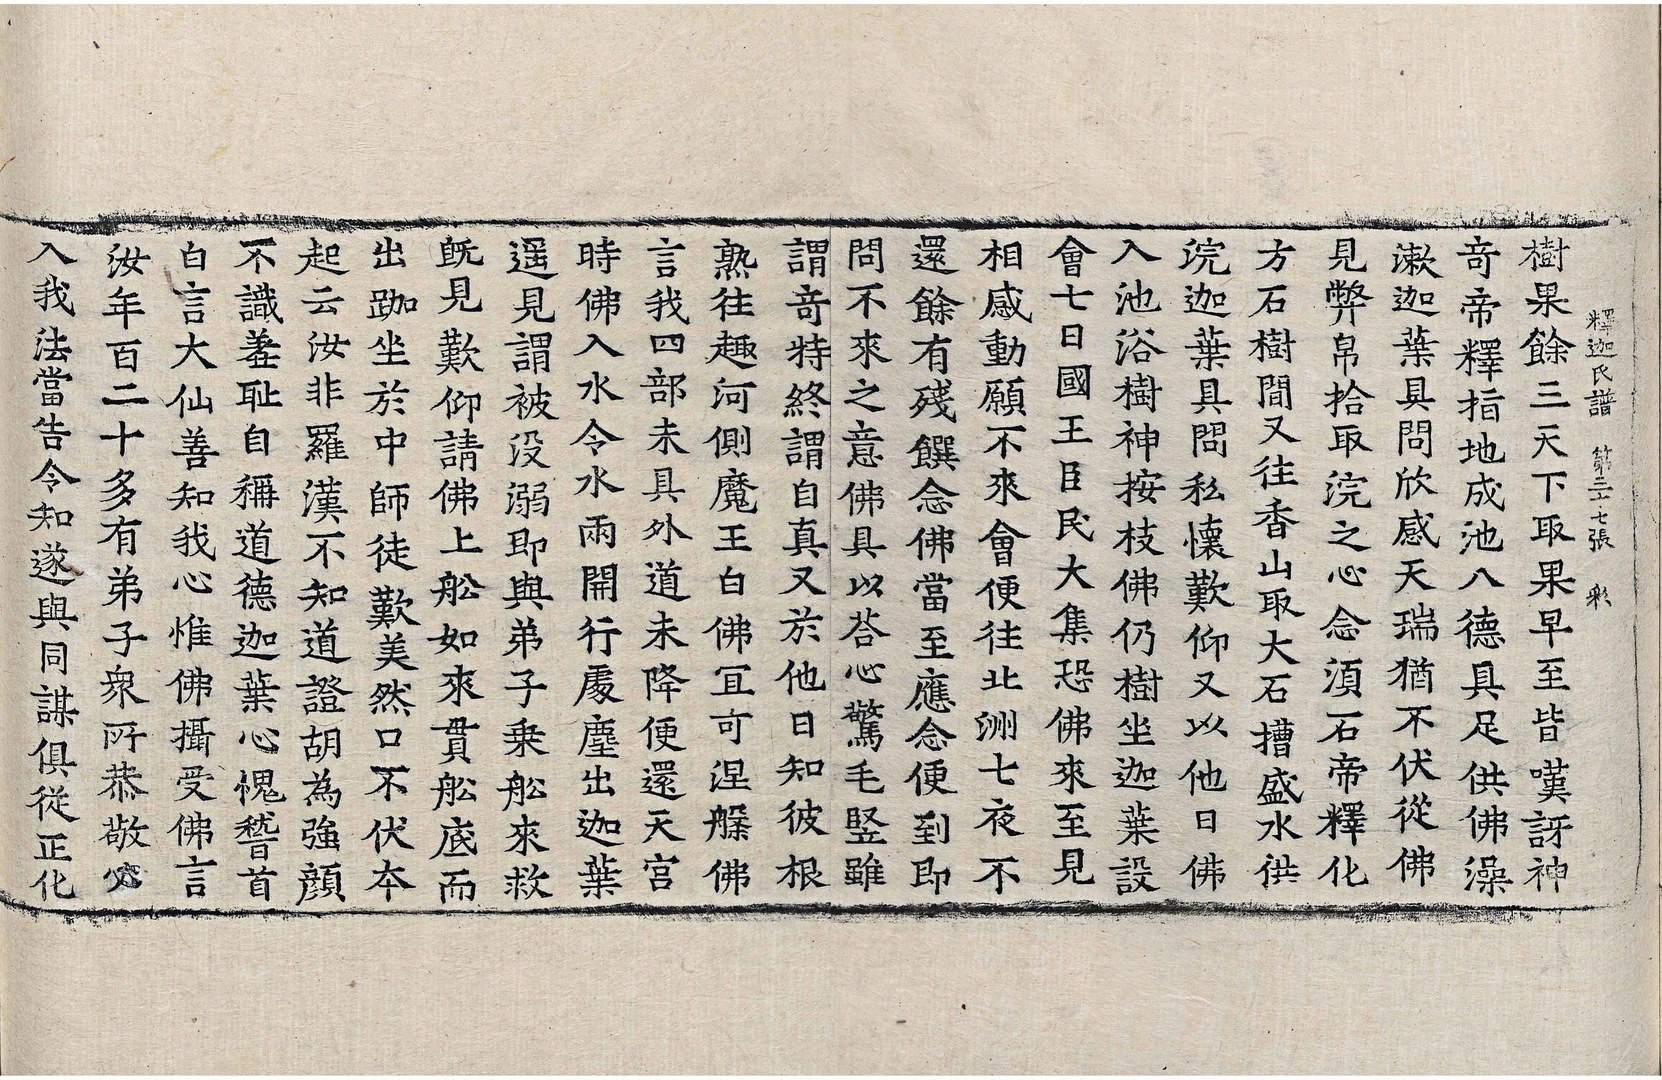 釋迦氏譜　第二十七張　彩
樹果餘三天下取果早至皆嘆訝神
竒帝釋指地成池八德具足供佛澡
漱迦葉具問欣感天瑞猶不伏從佛
見弊帛拾取浣之心念湏石帝釋化
方石樹間又往香山取大石槽盛水供
浣迦葉具問私懷歎仰又以他日佛
入池浴樹神按枝佛仍樹坐迦葉設
會七日國王臣民大集恐佛來至見
相感動願不來會便往北洲七夜不
還餘有残饌念佛當至應念便到即
問不來之意佛具以荅心驚毛竪雖
謂竒特終謂自真又於他日知彼根
熟往趣河側魔王白佛冝可涅槃佛
言我四部未具外道未降便還天宮
時佛入水令水兩開行處塵出迦葉
遥見謂被没溺即與弟子乗舩來救
旣見歎仰請佛上舩如來貫舩底而
出跏坐於中師徒歎美然口不伏夲
起云汝非羅漢不知道證胡為強顔
不識羞耻自稱道德迦葉心愧䭫首
白言大仙善知我心惟佛攝受佛言
汝年百二十多有弟子衆所恭敬必
入我法當告令知遂與同謀俱從正化